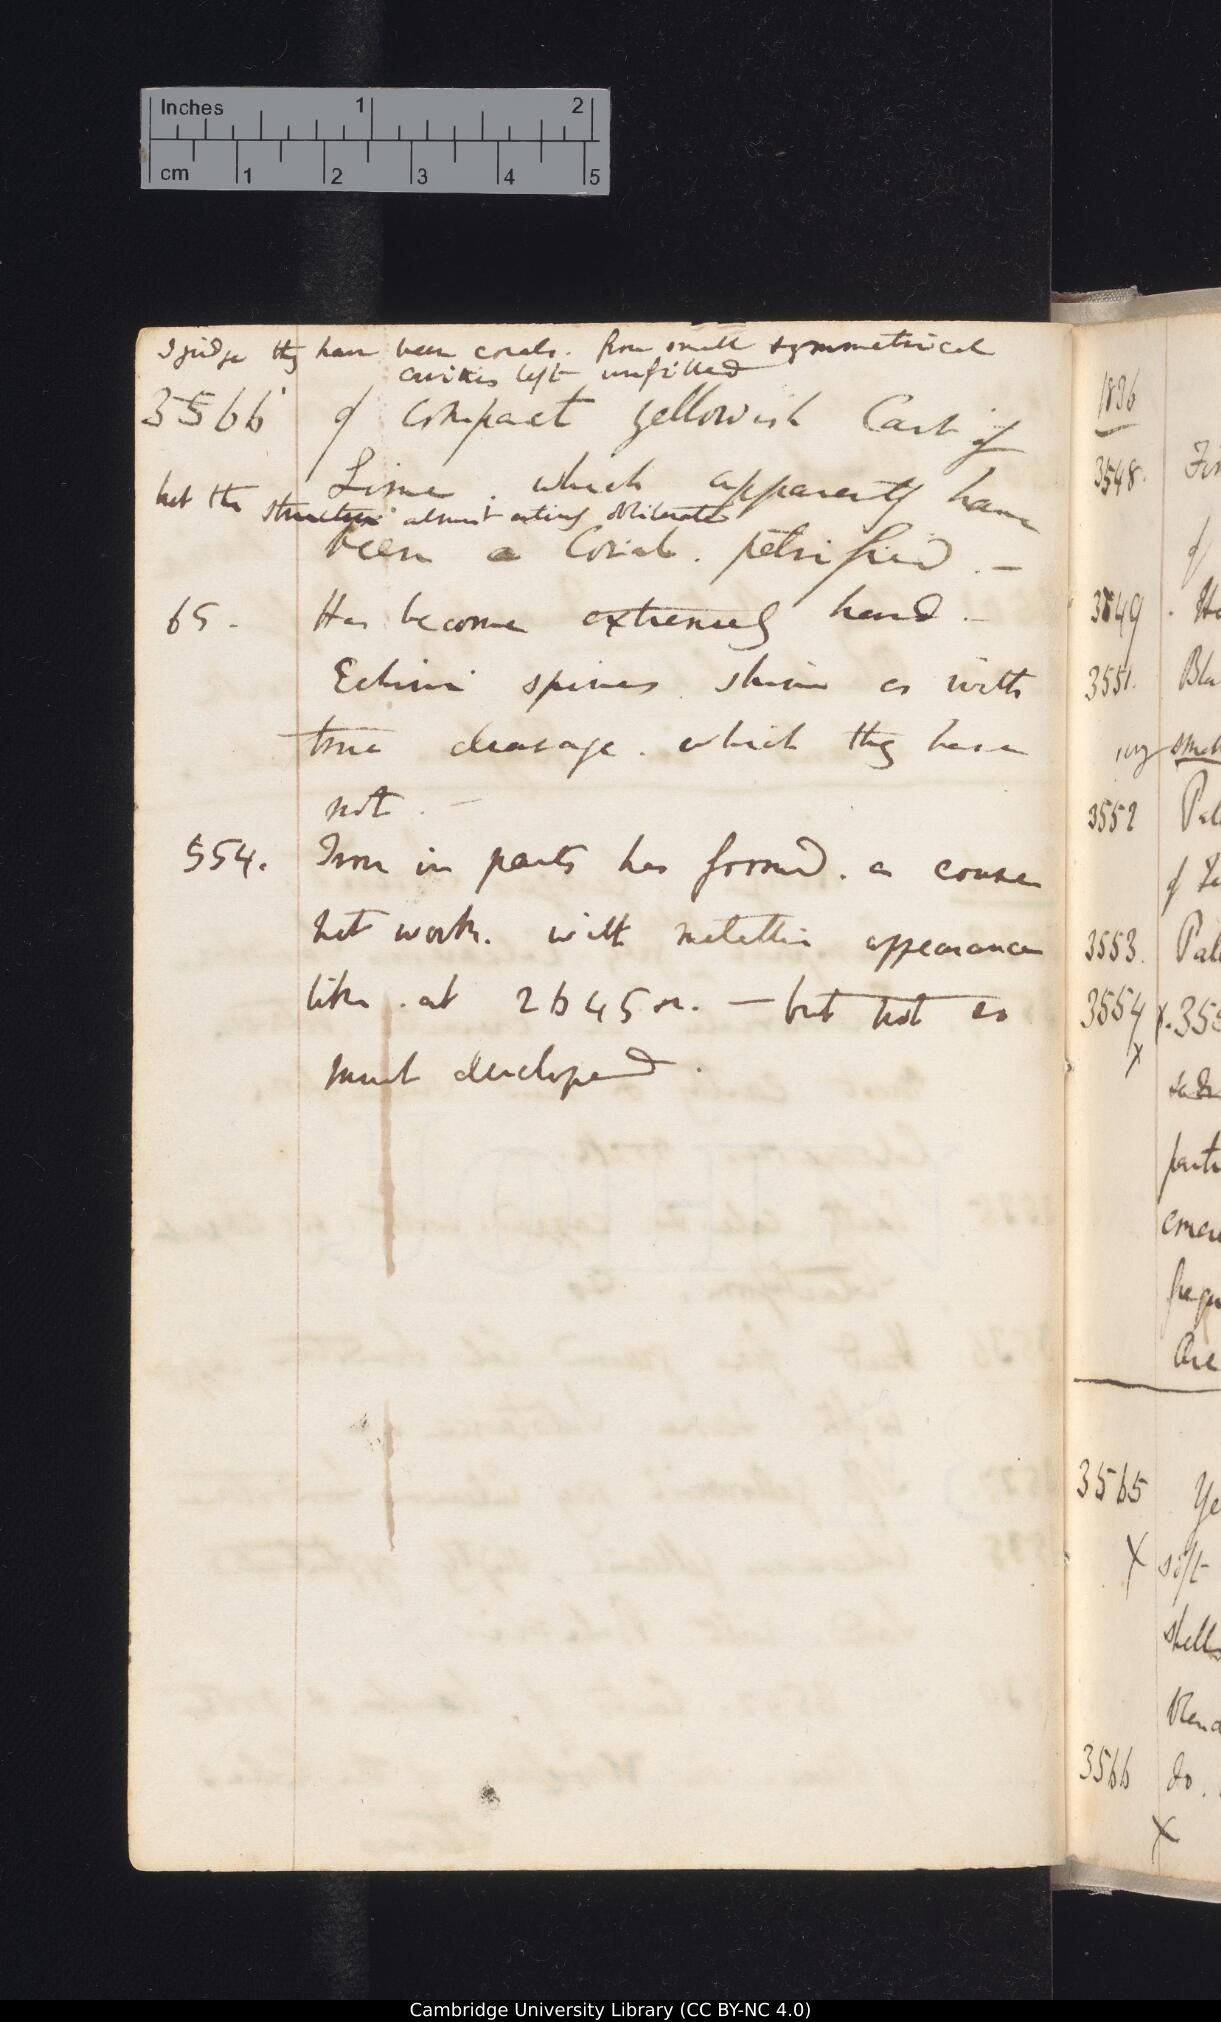 Inches 1 2
cm 1 2 3 4 5
I judge they have been corals. from small symmetrical
cavities left unfilled
3566 of compact yellowish Carb: of
Lime. which apparently have
but the structure almost entirely obliterated
been a Coral. petrified. —
65. Has become extremely hard. —
Echini spines shine as with
true cleavage. which they have
not. —
554. Iron in parts has formed. a coarse
net work. with metallic appearance
like. at 2645 — but not so
much developed.
1836
3548.
of
3549.
3551.
3552
of
3553.
3554
x
3565
x soft
shells
3566 do.
x
Cambridge University Library (CC BY-NC 4.0)